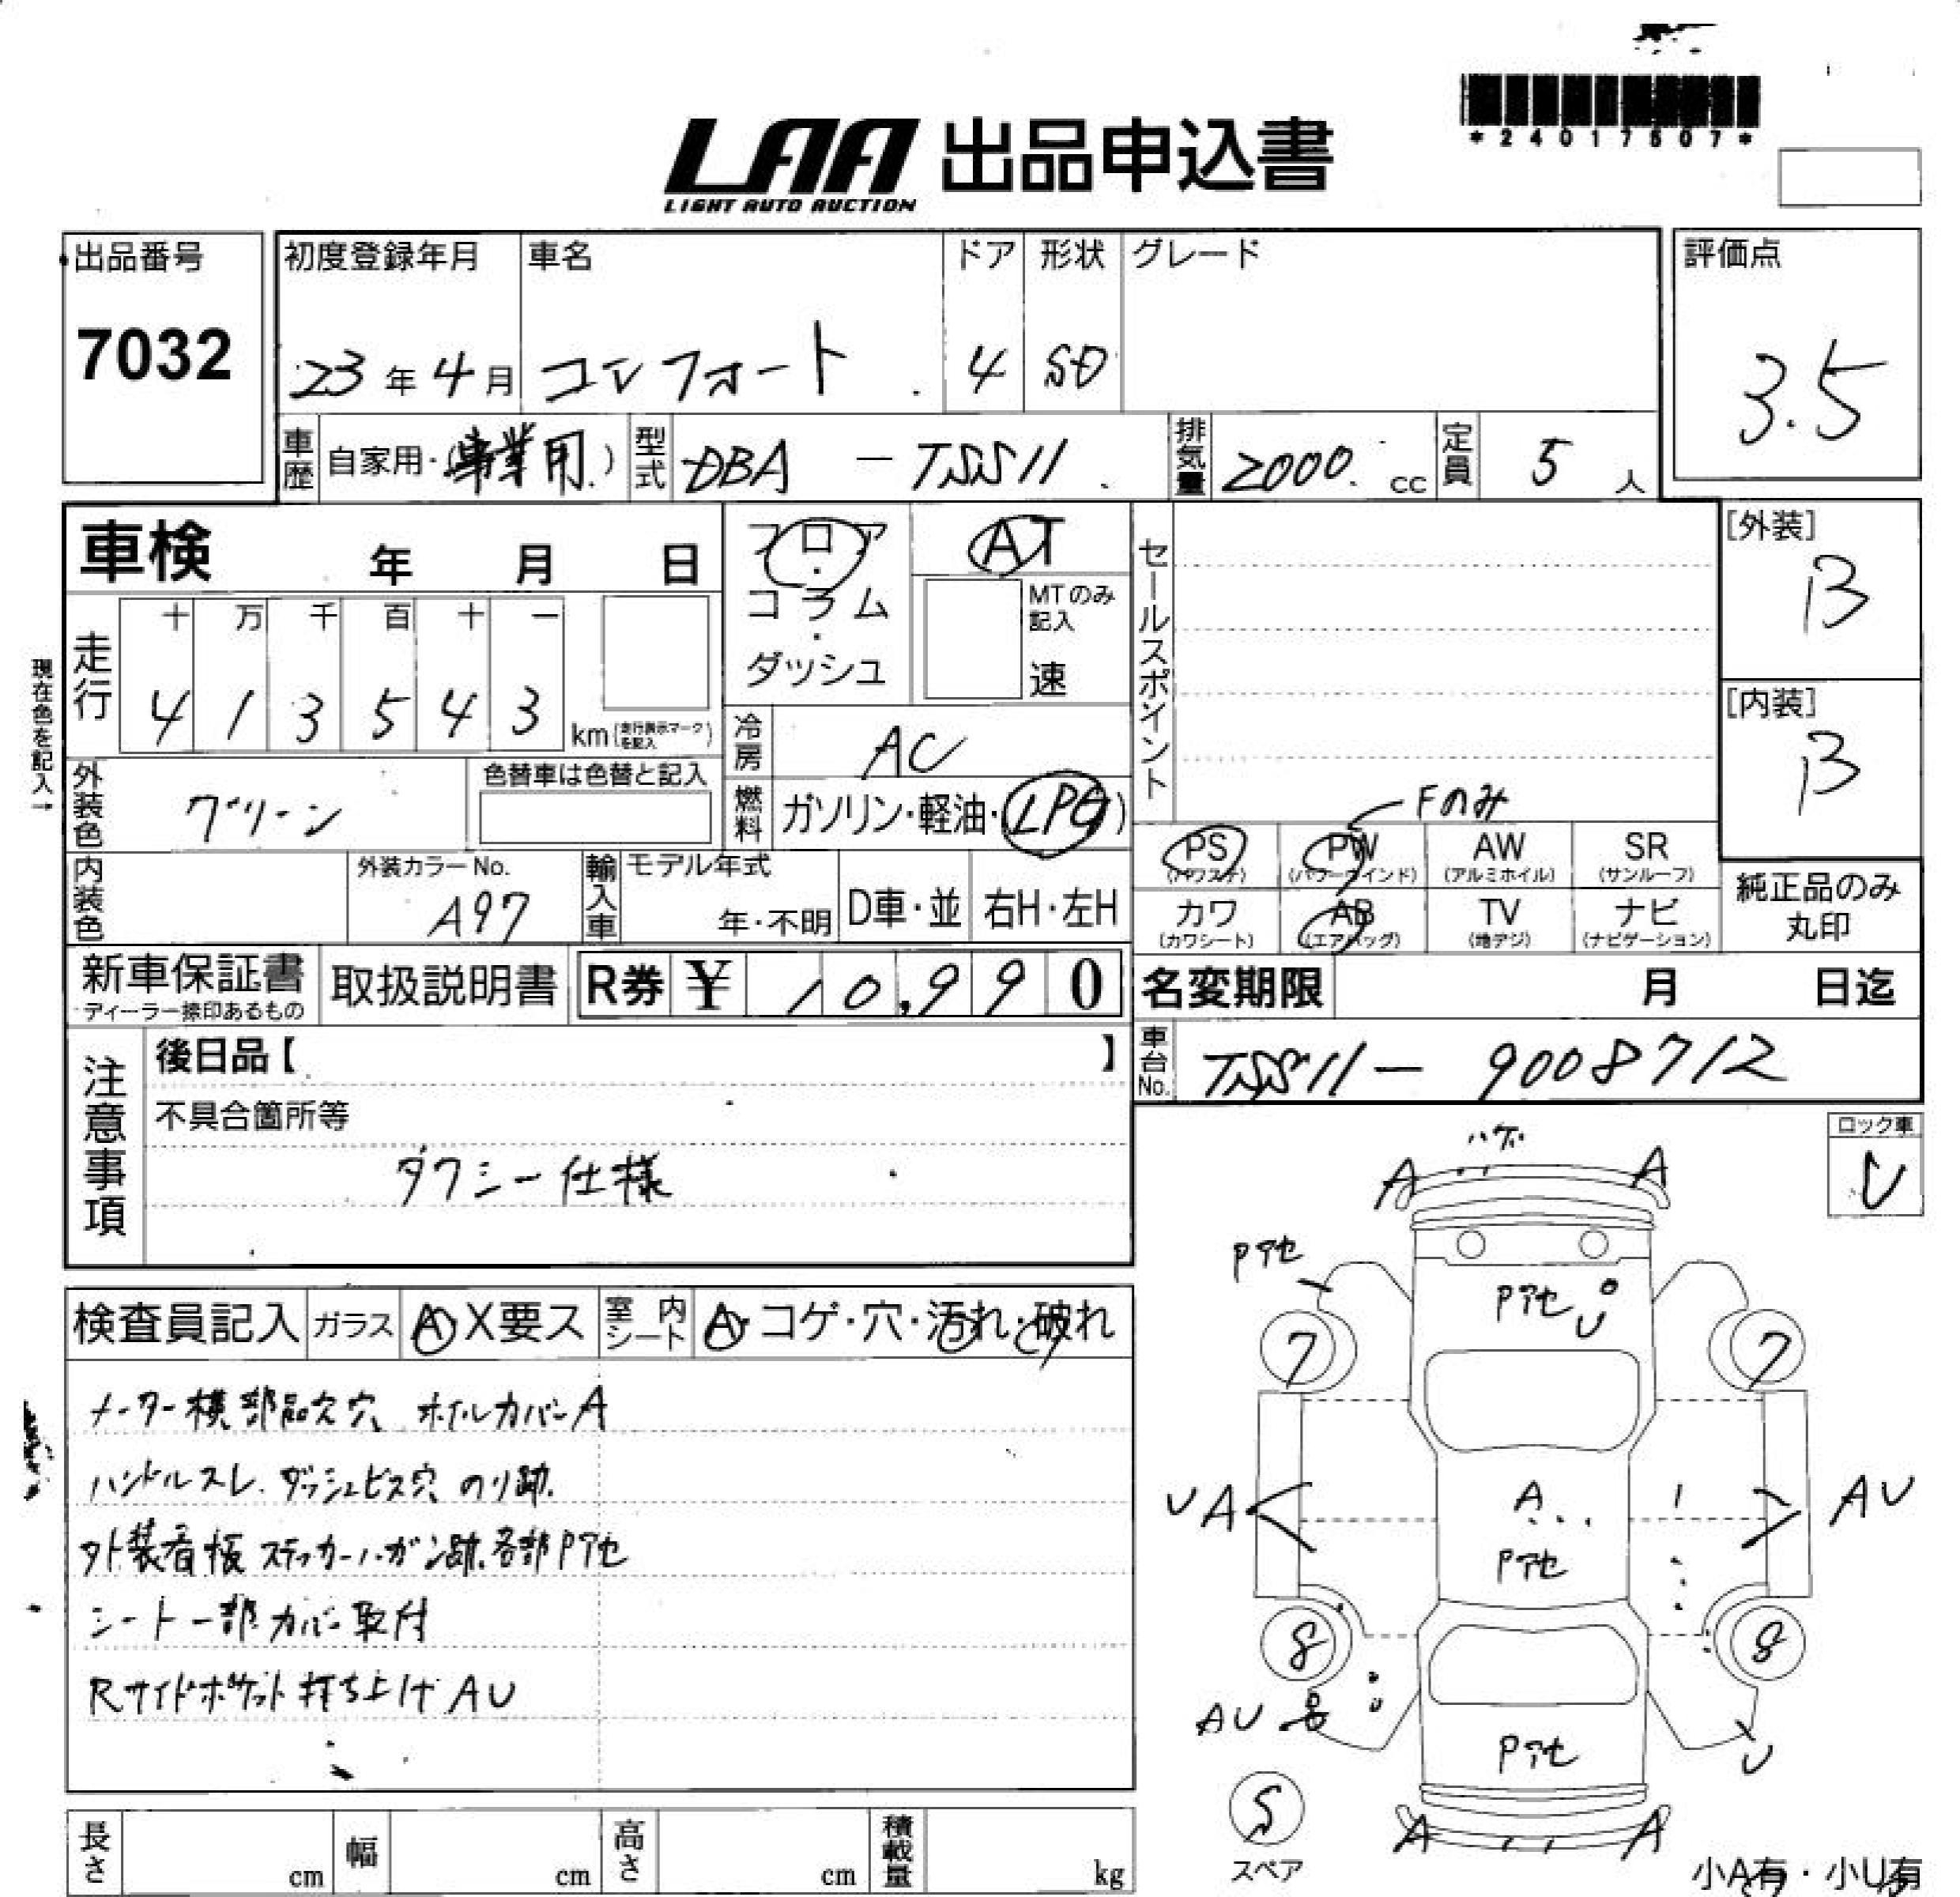 *24017507*
LAA 出品申込書
LIGHT AUTO AUCTION
出品番号
7032
初度登録年月
23年4月
車名
コンフォート
ドア
4
形状
SD
グレード
評価点
3.5
車歴
自家用・(事業用)
型式
DBA - TSS11
排気量
2000 cc
定員
5 人
車検 年 月 日
フロア・コラム・ダッシュ
AT
MTのみ記入
速
セールスポイント
[外装]
B
[内装]
B
現在色を記入→
走行
十 万 千 百 十 一
4 1 3 5 4 3 km(走行表示マークを記入)
冷房
AC
外装色
グリーン
色替車は色替と記入
燃料
ガソリン・軽油・(LPG)
Fのみ
PS (パワステ)
PW (パワーウインド)
AW (アルミホイル)
SR (サンルーフ)
カワ (カワシート)
AB (エアバッグ)
TV (地デジ)
ナビ (ナビゲーション)
純正品のみ
丸印
内装色
外装カラーNo.
A97
輸入車
モデル年式
年・不明
D車・並
右H・左H
新車保証書
ディーラー捺印あるもの
取扱説明書
R券 ¥ 10,990
名変期限 月 日迄
注意事項
後日品【 】
不具合箇所等
タクシー仕様
車台No.
TSS11-9008712
ロック車
レ
検査員記入
ガラス
A X要ス
室内シート
A・コゲ・穴・汚れ・破れ
メーター横部品欠穴、ホイルカバーA
ハンドルスレ、ダッシュビス穴、のり跡
外装看板ステッカーハガシ跡、各部Pアセ
シート一部カバー取付
Rサイドポケット打ち上げAU
ハゲ
A A
Pアセ
Pアセ U
7 7
UA
A
AU
Pアセ
8 8
AU
Pアセ
U
S
スペア
A A
小A有・小U有
長さ cm
幅 cm
高さ cm
積載量 kg